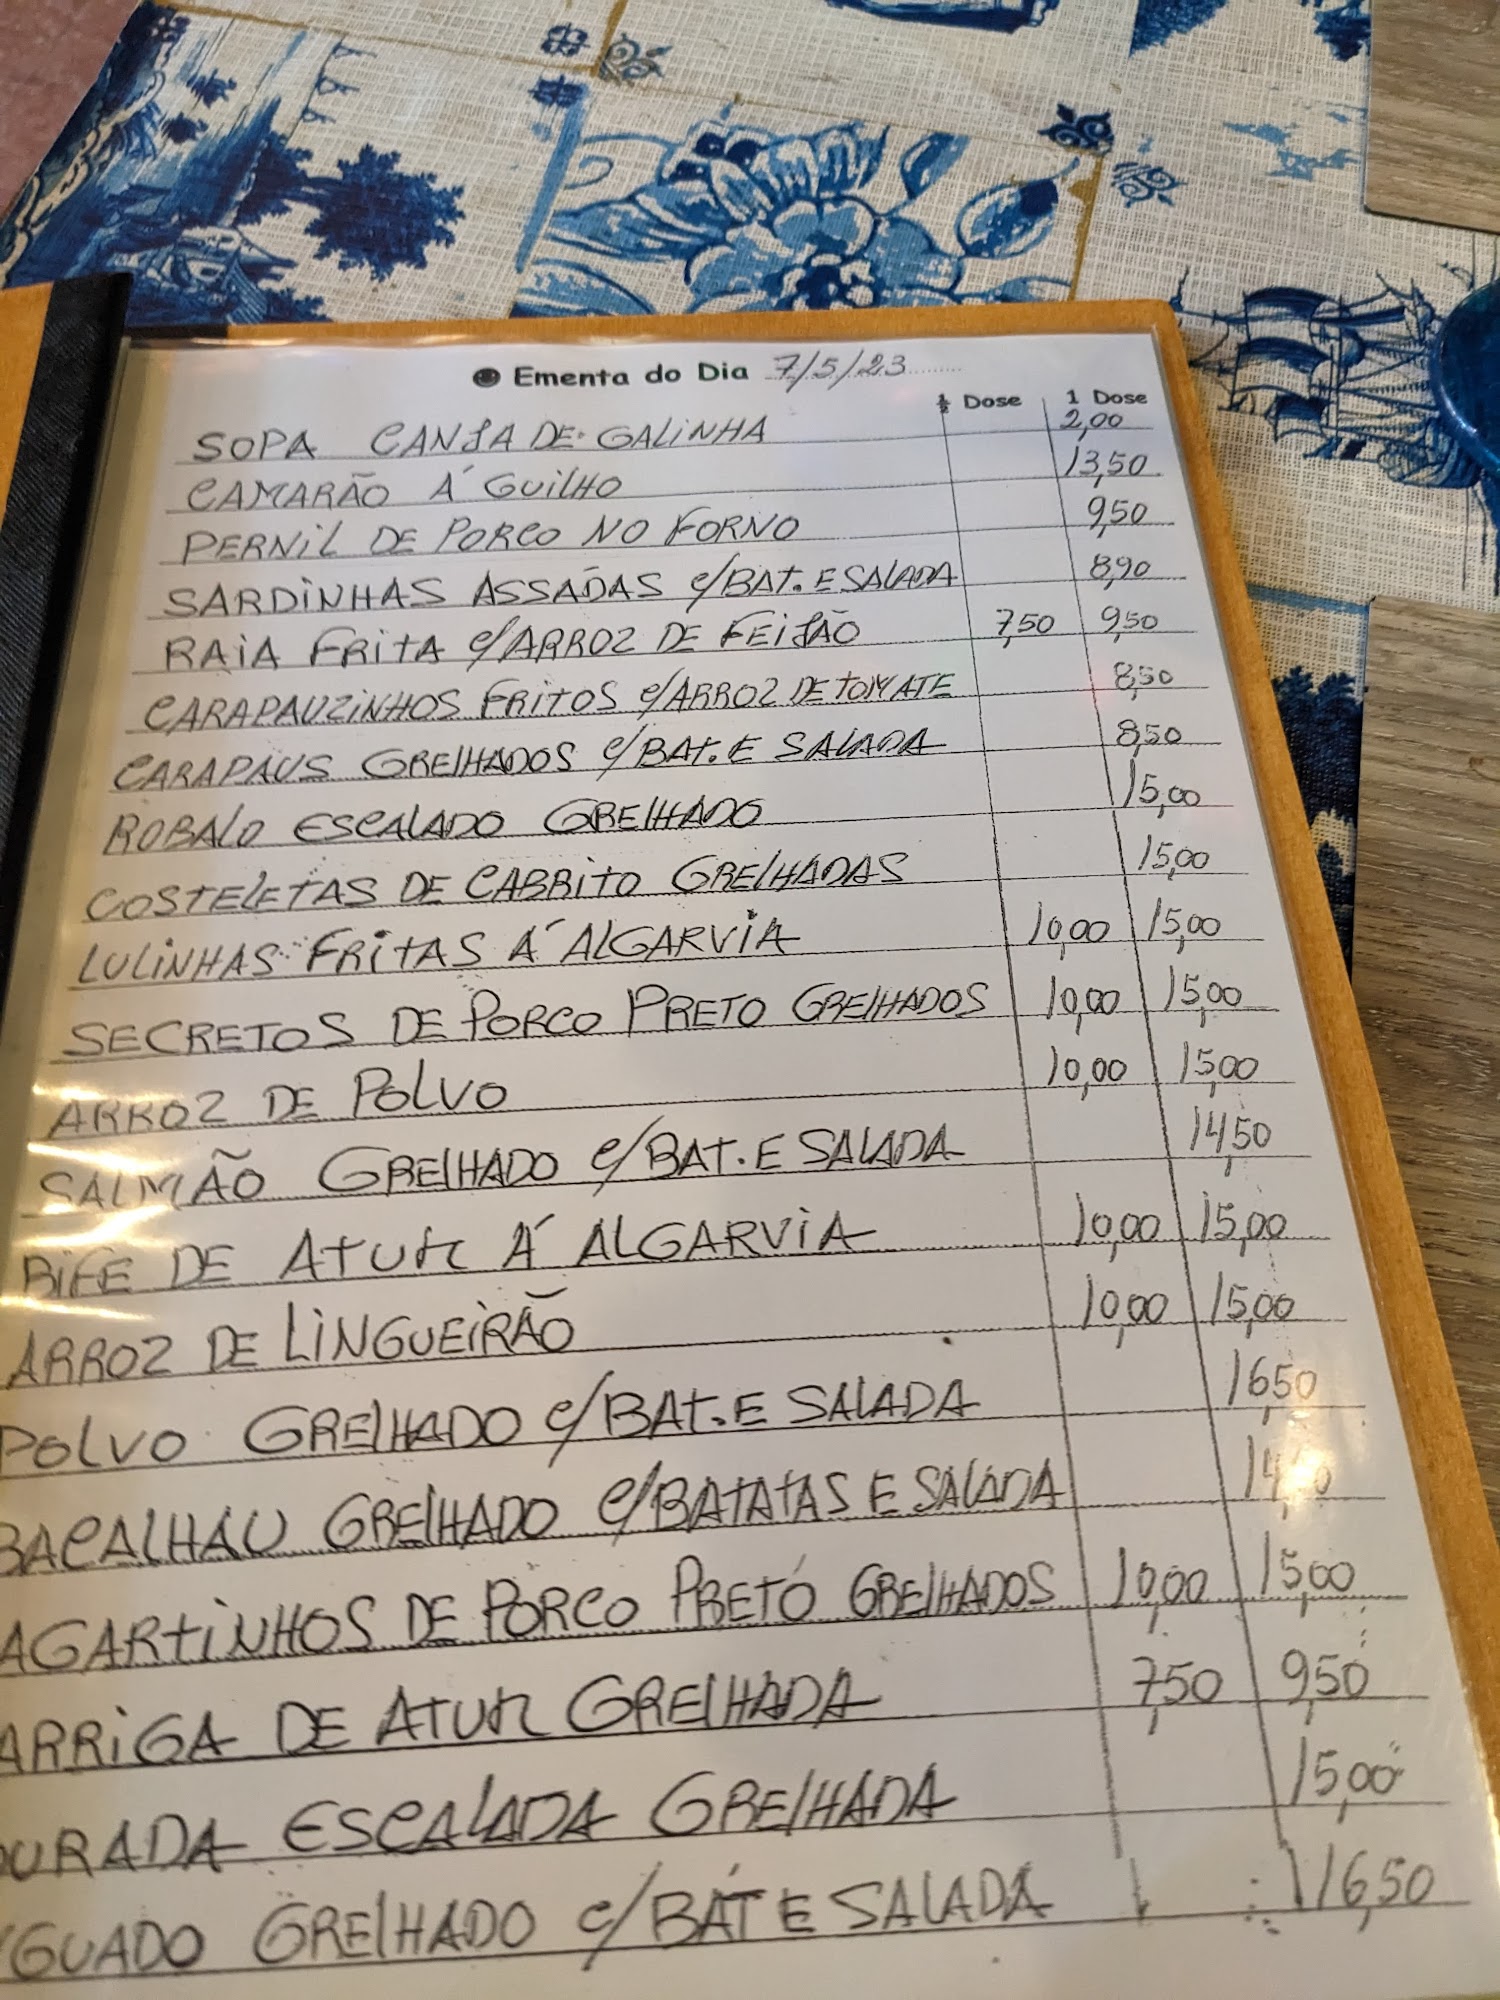 Ementa do Dia 7/5/23
½ Dose 1 Dose
SOPA CANJA DE GALINHA 2,00
CAMARÃO Á GUILHO 13,50
PERNIL DE PORCO NO FORNO 9,50
SARDINHAS ASSADAS C/BAT. E SALADA 8,90
RAIA FRITA C/ARROZ DE FEIJÃO 7,50 9,50
CARAPAUZINHOS FRITOS C/ARROZ DE TOMATE 8,50
CARAPAUS GRELHADOS C/BAT. E SALADA 8,50
ROBALO ESCALADO GRELHADO 15,00
COSTELETAS DE CABRITO GRELHADAS 15,00
LULINHAS FRITAS Á ALGARVIA 10,00 15,00
SECRETOS DE PORCO PRETO GRELHADOS 10,00 15,00
ARROZ DE POLVO 10,00 15,00
SALMÃO GRELHADO C/BAT. E SALADA 14,50
BIFE DE ATUM Á ALGARVIA 10,00 15,00
ARROZ DE LINGUEIRÃO 10,00 15,00
POLVO GRELHADO C/BAT. E SALADA 16,50
BACALHAU GRELHADO C/BATATAS E SALADA
AGARTINHOS DE PORCO PRETO GRELHADOS 10,00 15,00
ARRIGA DE ATUM GRELHADA 7,50 9,50
OURADA ESCALADA GRELHADA 15,00
GUADO GRELHADO C/BAT E SALADA 16,50